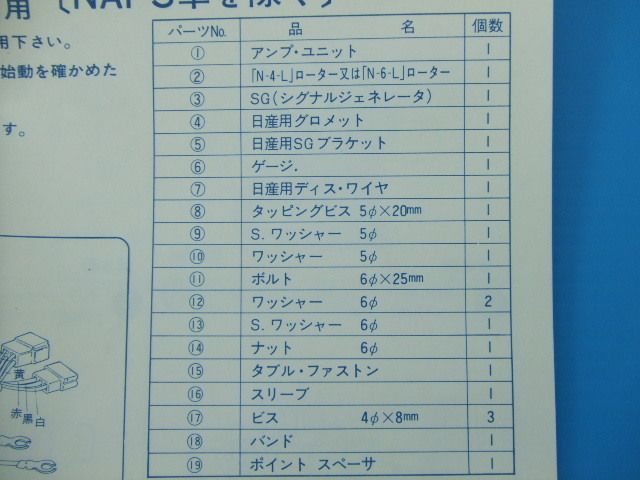 用〔NAPS車を除く〕
用下さい。
始動を確かめた
す。
パーツNo. 品名 個数
① アンプ・ユニット 1
② 「N-4-L」ローター又は「N-6-L」ローター 1
③ SG(シグナルジェネレータ) 1
④ 日産用グロメット 1
⑤ 日産用SGブラケット 1
⑥ ゲージ. 1
⑦ 日産用ディス・ワイヤ 1
⑧ タッピングビス 5φ×20mm 1
⑨ S. ワッシャー 5φ 1
⑩ ワッシャー 5φ 1
⑪ ボルト 6φ×25mm 1
⑫ ワッシャー 6φ 2
⑬ S. ワッシャー 6φ 1
⑭ ナット 6φ 1
⑮ タブル・ファストン 1
⑯ スリーブ 1
⑰ ビス 4φ×8mm 3
⑱ バンド 1
⑲ ポイント スペーサ 1
黄
赤 黒 白